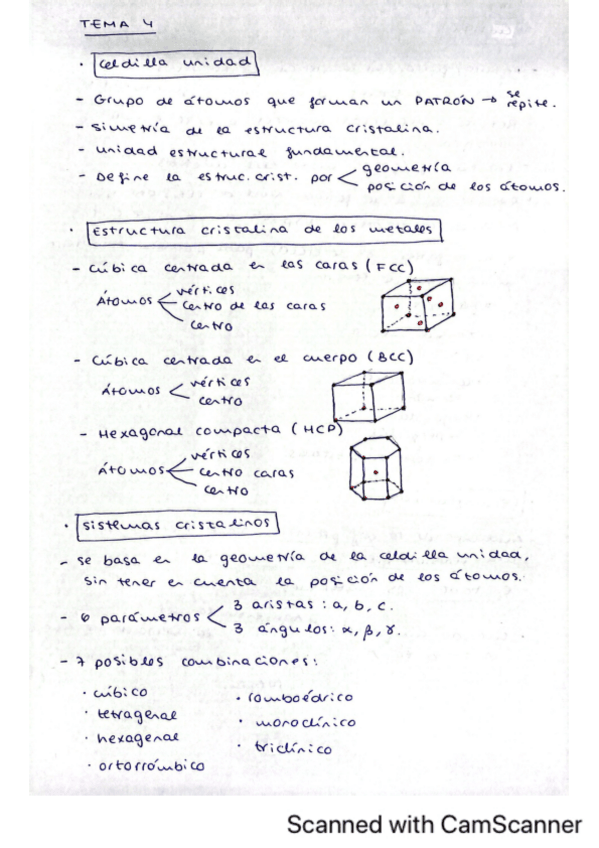 TEMA 4
· Celdilla unidad
- Grupo de átomos que forman un PATRÓN → se repite.
- simetría de la estructura cristalina.
- unidad estructural fundamental.
- Define la estruc. crist. por < geometría
posición de los átomos.
· Estructura cristalina de los metales
- Cúbica centrada en las caras (FCC)
Átomos < vértices
centro de las caras
centro
- Cúbica centrada en el cuerpo (BCC)
Átomos < vértices
centro
- Hexagonal compacta (HCP)
Átomos < vértices
centro caras
centro
· sistemas cristalinos
- se basa en la geometría de la celdilla unidad,
sin tener en cuenta la posición de los átomos.
- 6 parámetros < 3 aristas : a, b, c.
3 ángulos: α, β, γ.
- 7 posibles combinaciones:
· cúbico
· tetragonal
· hexagonal
· ortorrómbico
· romboédrico
· monoclínico
· triclínico
Scanned with CamScanner